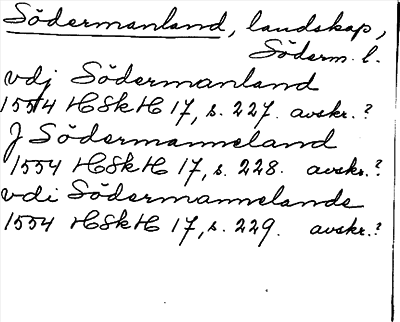 Södermanland, landskap,
Söderm. l.
vdj Södermanland
1554 HSkH 17, s. 227. avskr.?
J Södermanneland
1554 HSkH 17, s. 228. avskr.?
vdi Södermannelande
1554 HSkH 17, s. 229. avskr.?